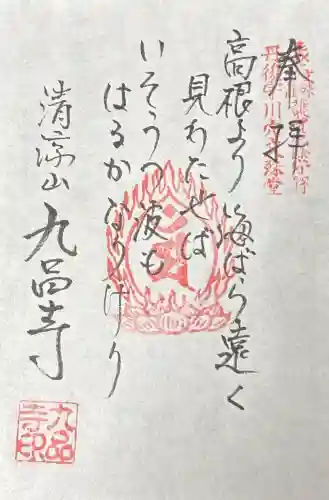 奉拝
高根より海ばら遠く
見わたせば
いそうつ波も
はるかなりけり
清涼山
九品寺
九品
寺印